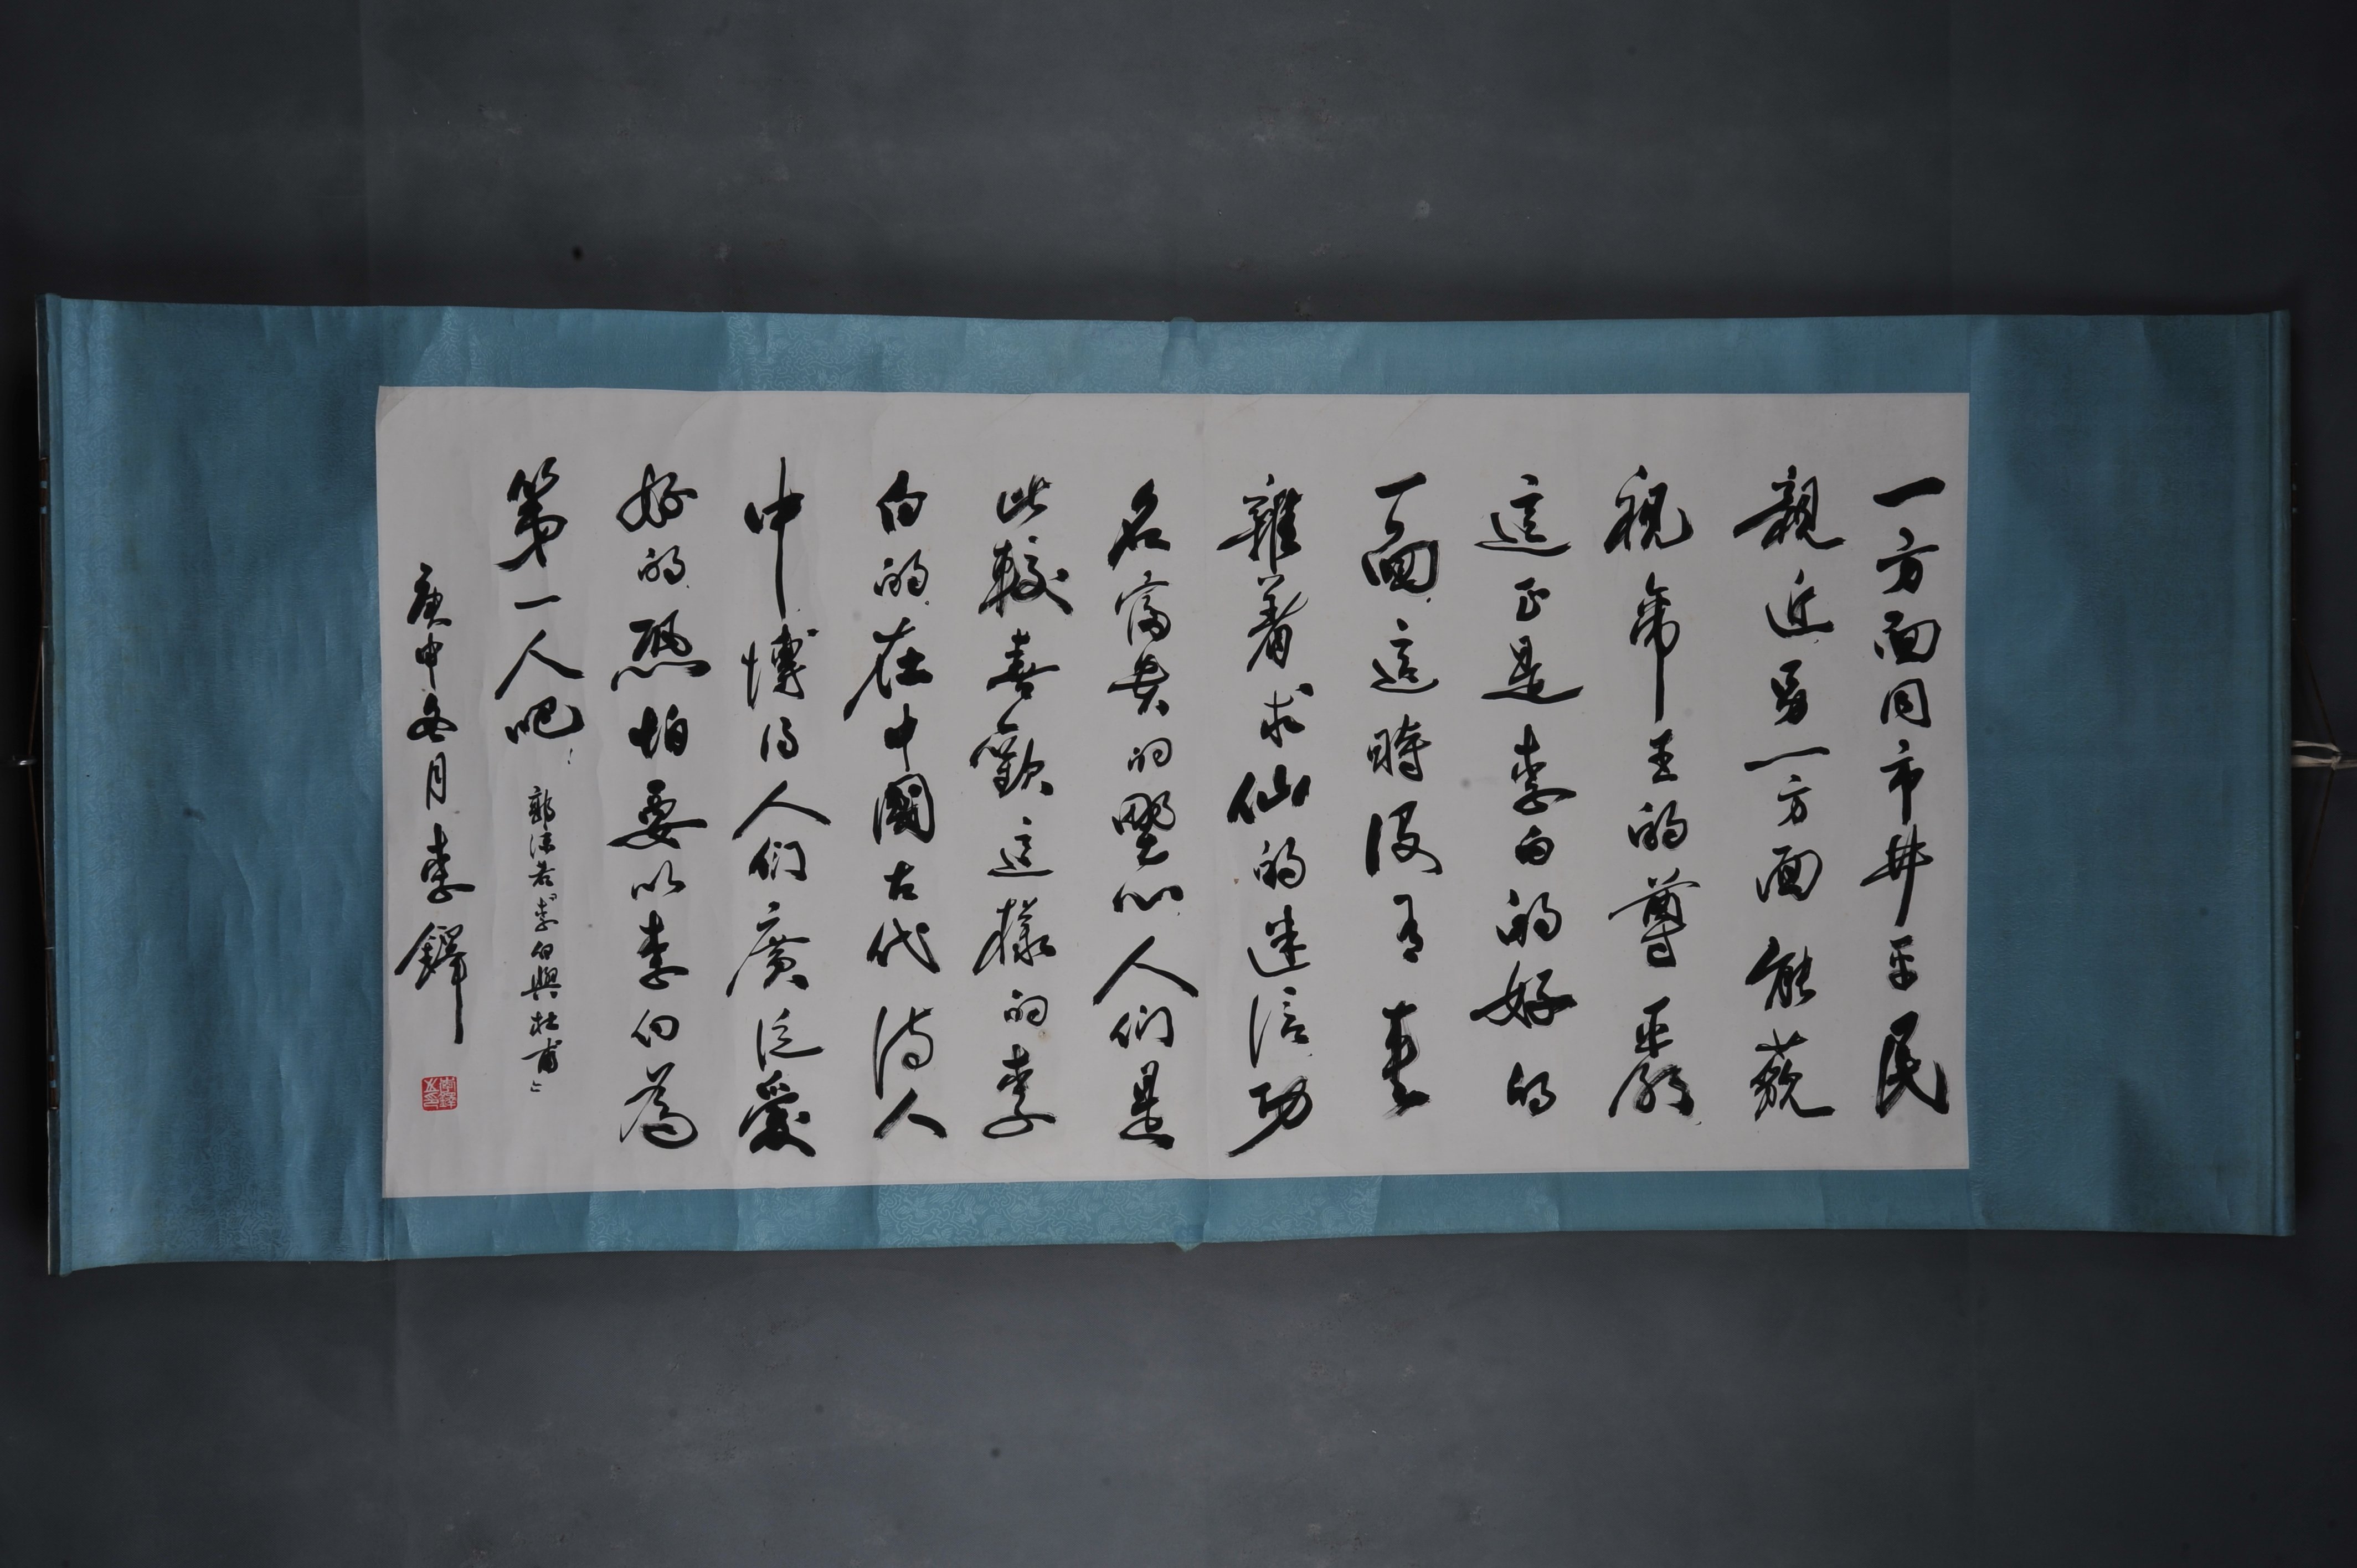 一方面同市井平民
親近另一方面能藐
視帝王的尊嚴
這正是李白的好的
一面這時沒有夾
雜着求仙的迷信功
名富貴的野心人們是
比較喜歡這樣的李
白的在中國古代詩人
中博得人們廣泛愛
好的恐怕要以李白為
第一人吧！
郭沫若李白與杜甫
庚申冬月李鐸